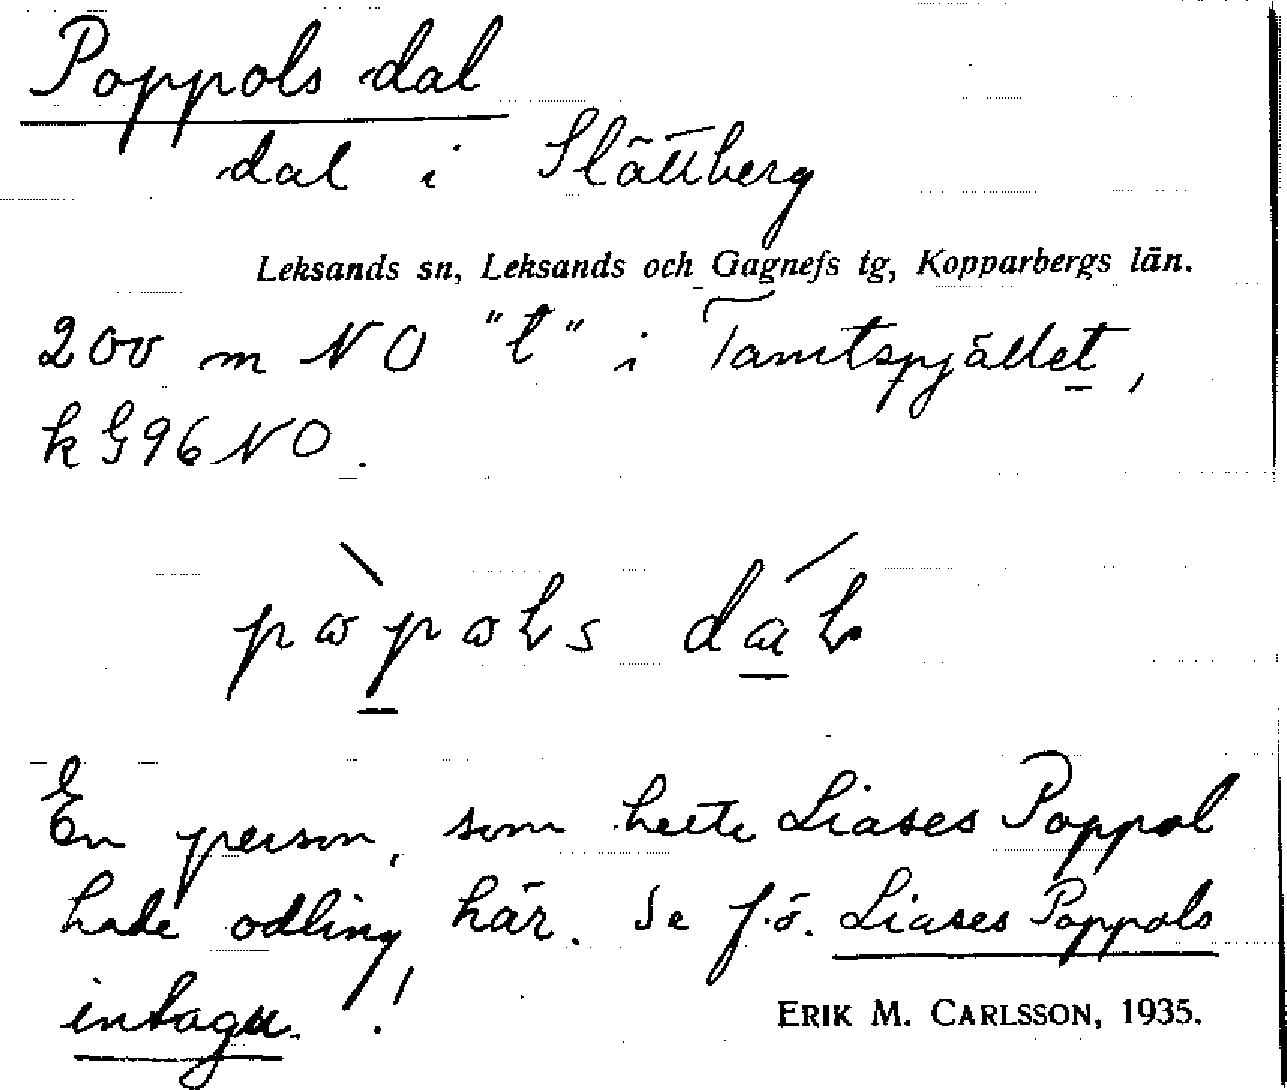 Poppols dal
dal i Slättberg
Leksands sn, Leksands och Gagnefs tg, Kopparbergs län.
200 m NO "t" i Tamtspjället,
k G96NO.
En person, som hette Liases Poppol
hade odling här. Se f.ö. Liases Poppols
intagu.!
ERIK M. CARLSSON, 1935.